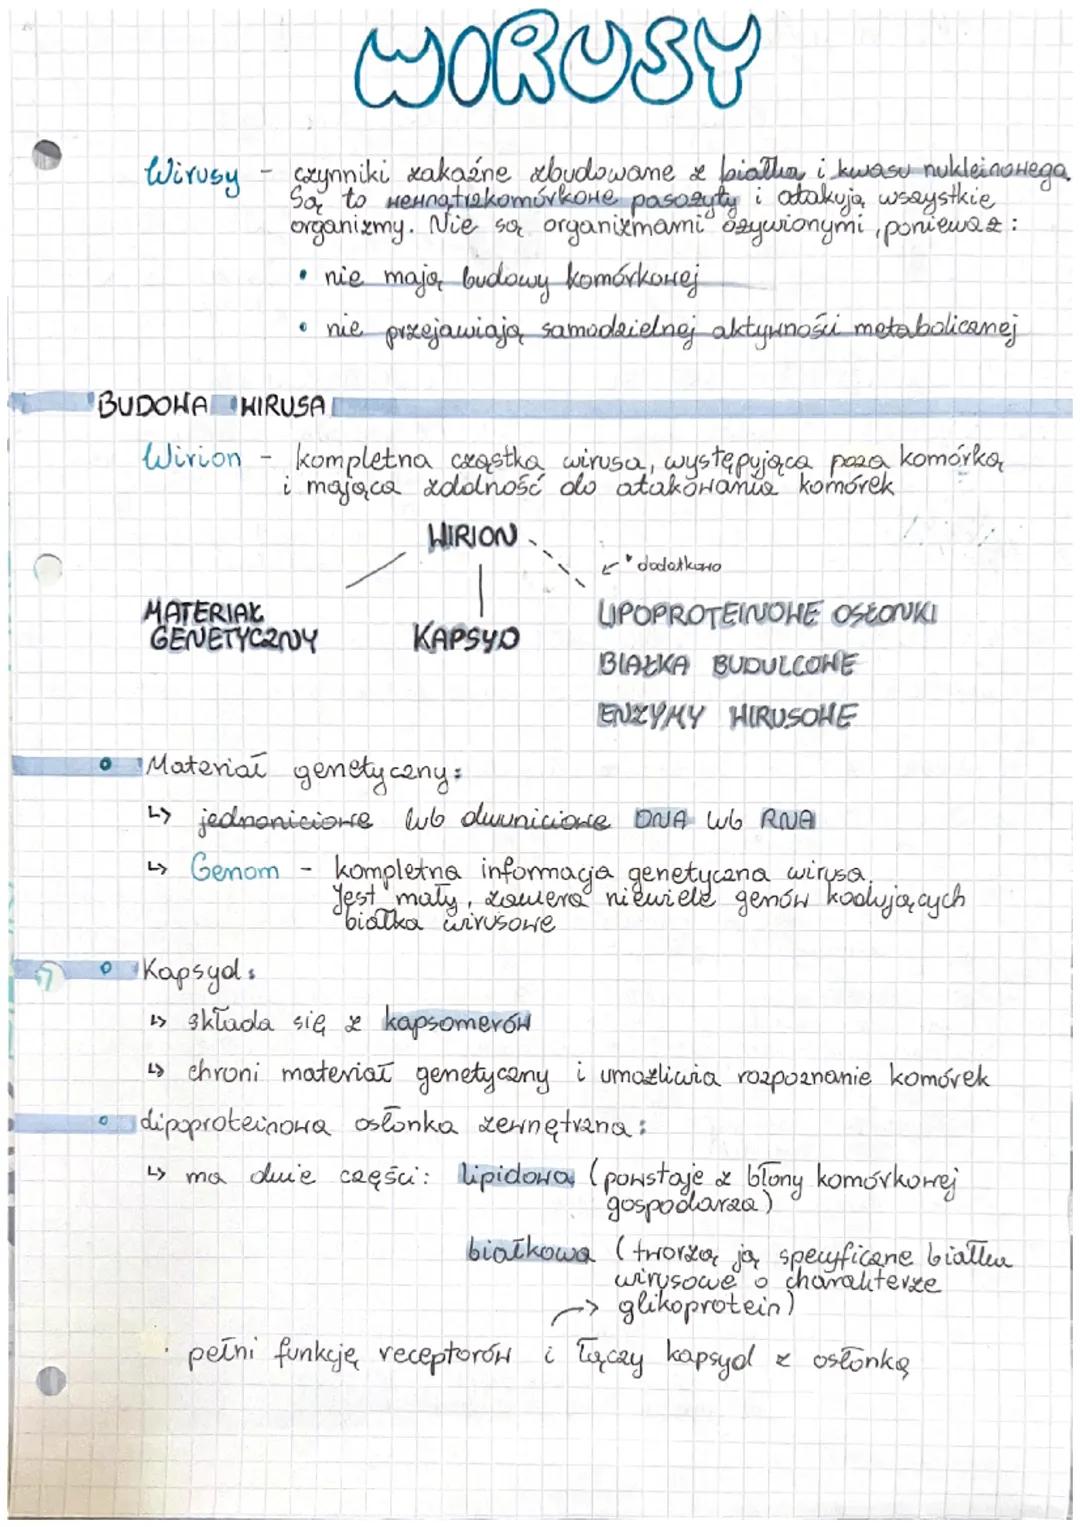 WIRUSY
Wirusy - czynniki zakaźne zbudowane z białka i kwasu nukleinowego.
Są to wewnątrzkomórkowe pasożyty i atakują wszystkie
organizmy. Nie są organizmami ożywionymi, ponieważ:
• nie mają budowy komórkowej
• nie przejawiają samodzielnej aktywności metabolicznej
BUDOWA WIRUSA
Wirion - kompletna cząstka wirusa, występująca poza komórką
i mająca zdolność do atakowania komórek
WIRION
* dodatkowo
MATERIAŁ
GENETYCZNY
KAPSYD
LIPOPROTEINOWE OSŁONKI
BIAŁKA BUDULCOWE
ENZYMY WIRUSOWE
• Materiał genetyczny:
↳ jednoniciowe lub dwuniciowe DNA lub RNA
↳ Genom - kompletna informacja genetyczna wirusa.
Jest mały, zawiera niewiele genów kodujących
białka wirusowe
• Kapsyd:
↳ składa się z kapsomerów
↳ chroni materiał genetyczny i umożliwia rozpoznanie komórek
• Lipoproteinowa osłonka zewnętrzna:
↳ ma dwie części: lipidowa (powstaje z błony komórkowej
gospodarza)
białkowa (tworzą ją specyficzne białka
wirusowe o charakterze
→ glikoprotein)
pełni funkcję receptorów i łączy kapsyd z osłonką